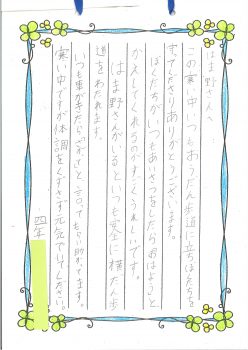 はま野さんへ
この寒い中いつもおうだん歩道に立ちぼくたちを
すくてくださりありがとうございます。
ぼくたちがいつもあいさつをしたらおはようと
かえしてくれるのがすごくうれしいです。
はま野さんがいるといつも安全に横だん歩
道をわたれます。
いつも車がきたらくるよと言ってもらい助かってます。
寒い中ですが体調をくずさず元気でいてください。
四年